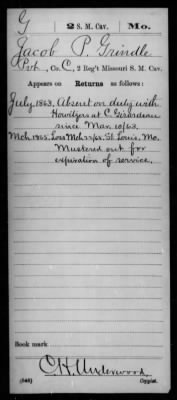 G | 2 S. M. Cav. | Mo.
Jacob P. Grindle
Pvt, Co. C, 2 Reg't Missouri S. M. Cav.
Appears on Returns as follows:
July 1863, Absent on duty with
Howitzers at C. Girardeau
since Mar. 10/63.
Mch 1865. Loss Mch 22/65. St. Louis, Mo.
Mustered out for
expiration of service.
Book mark:
C. H. Underwood
(546) Copyist.